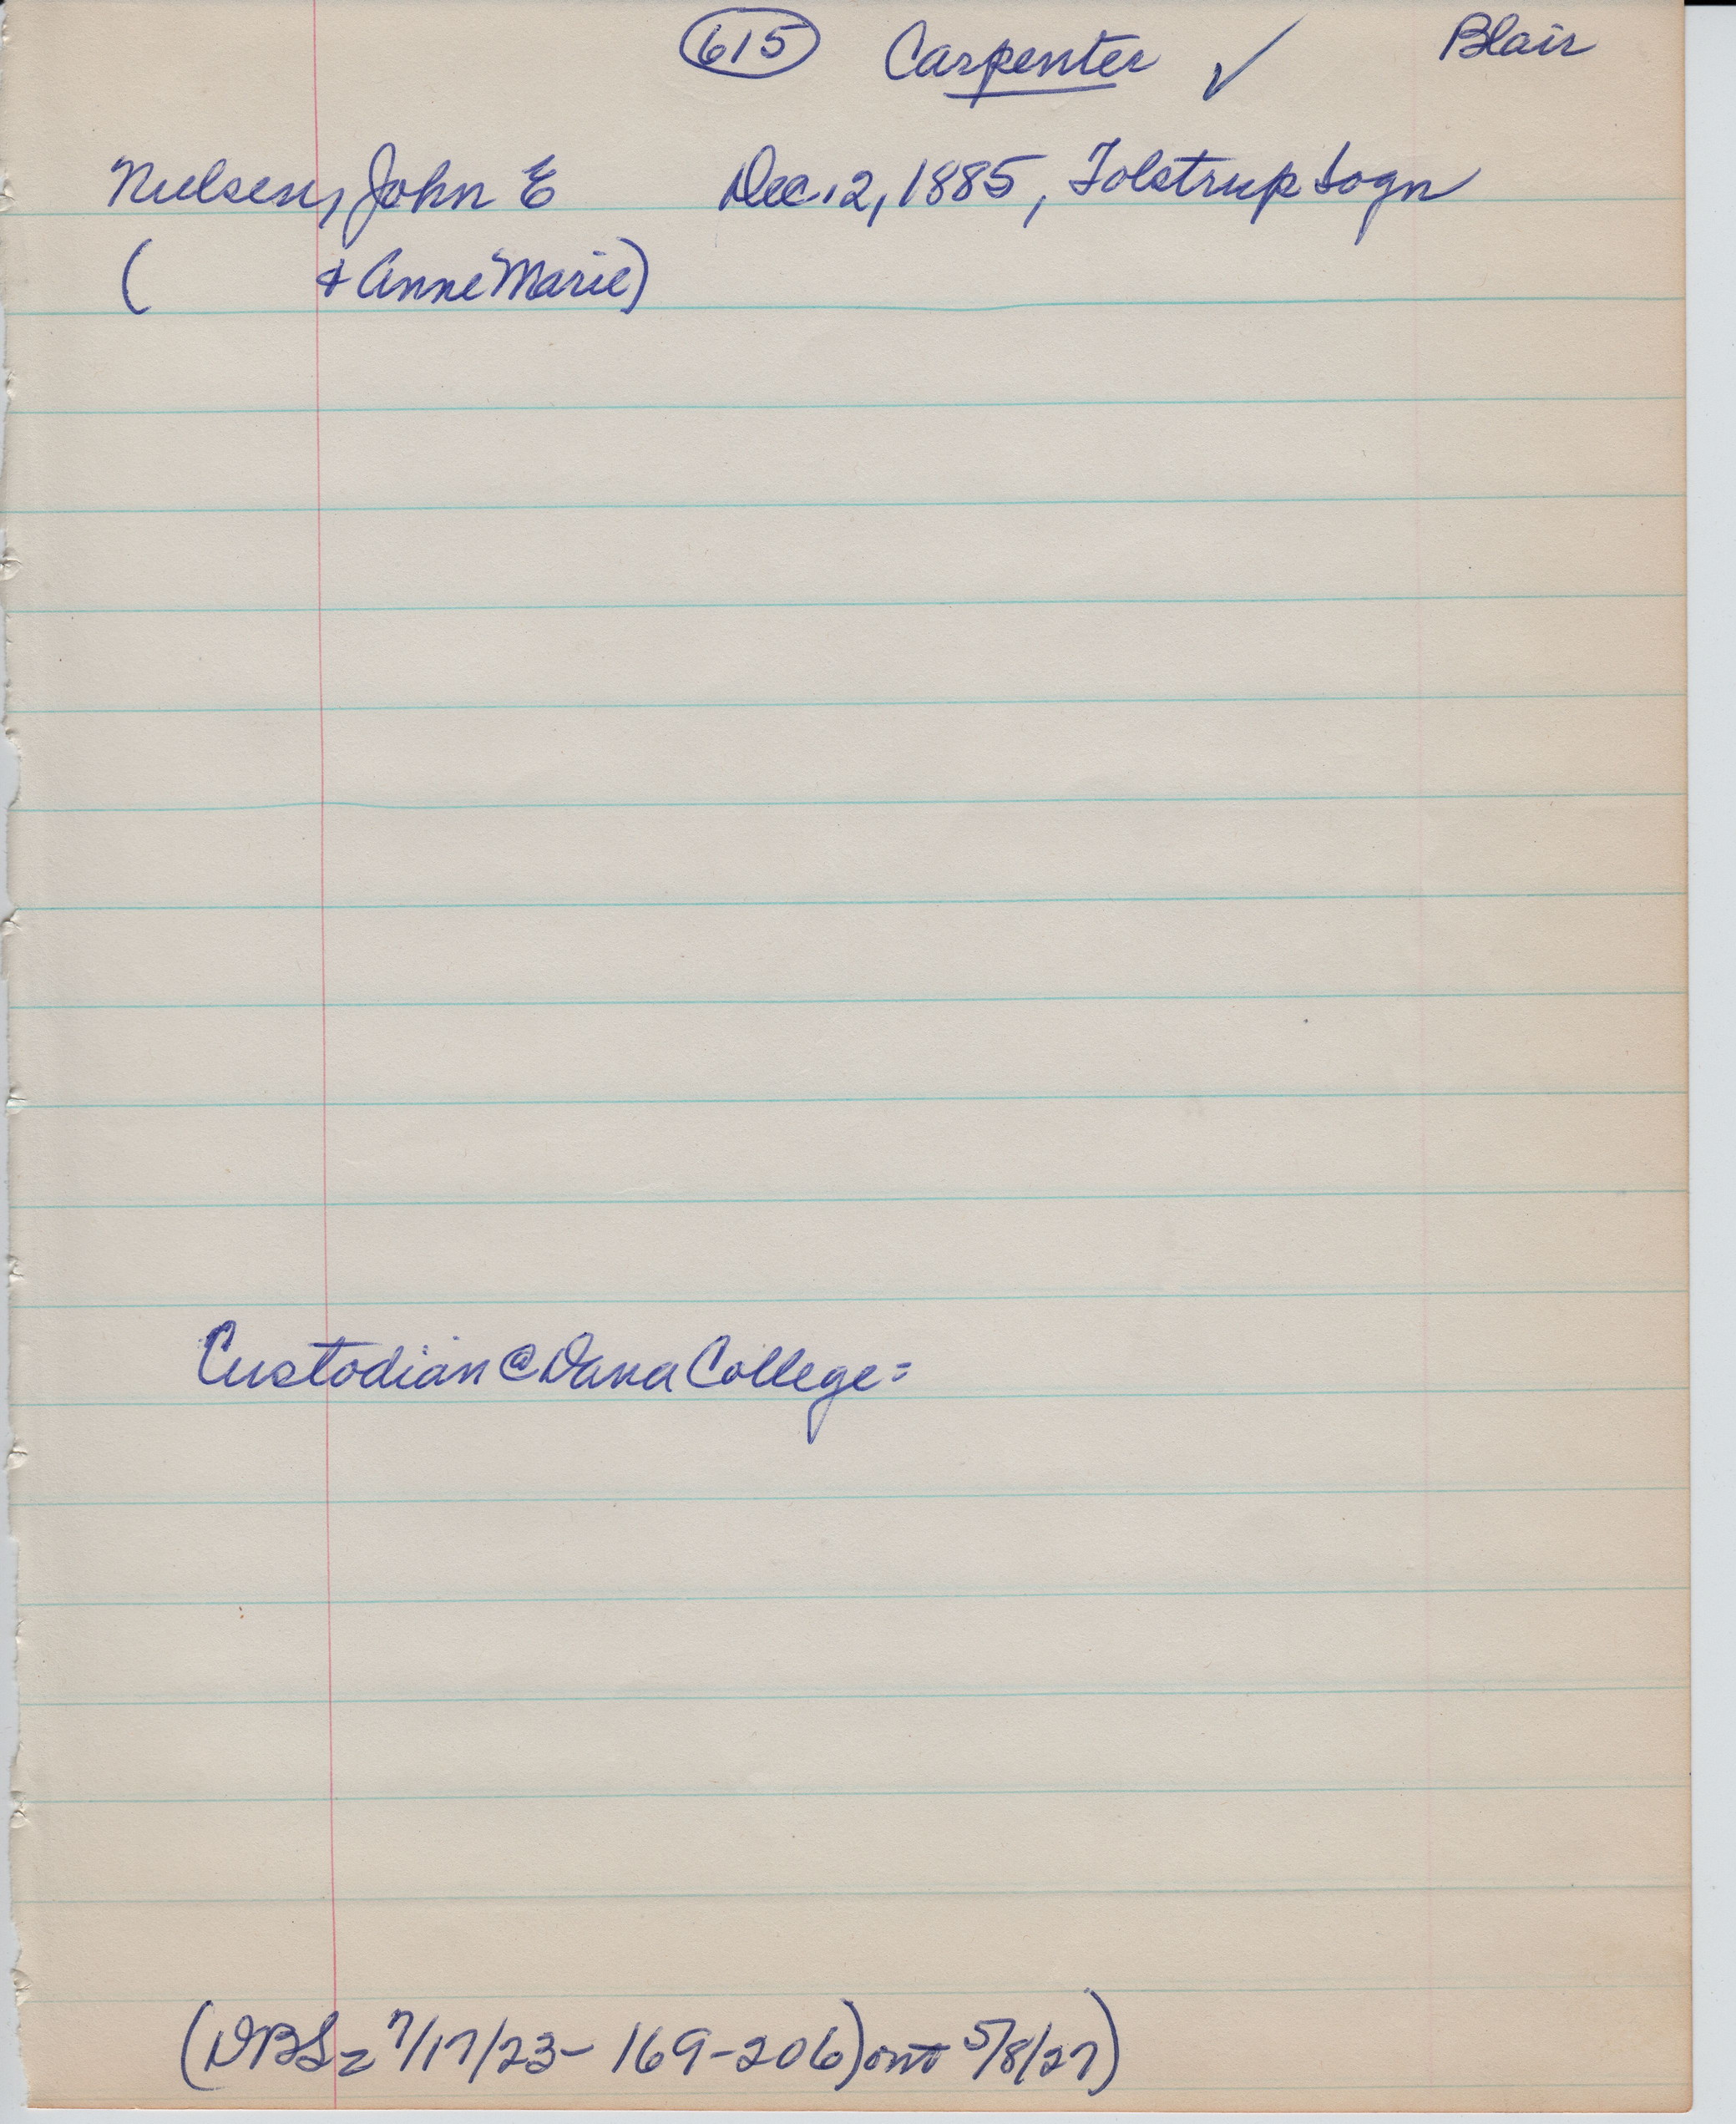 615 Carpenter ✓ Blair
Nielsen, John E Dec. 2, 1885, Tolstrup Sogn
( & Anne Marie)
Custodian @ Dana College=
(DBS= 7/17/23- 169-206) out 5/8/27)